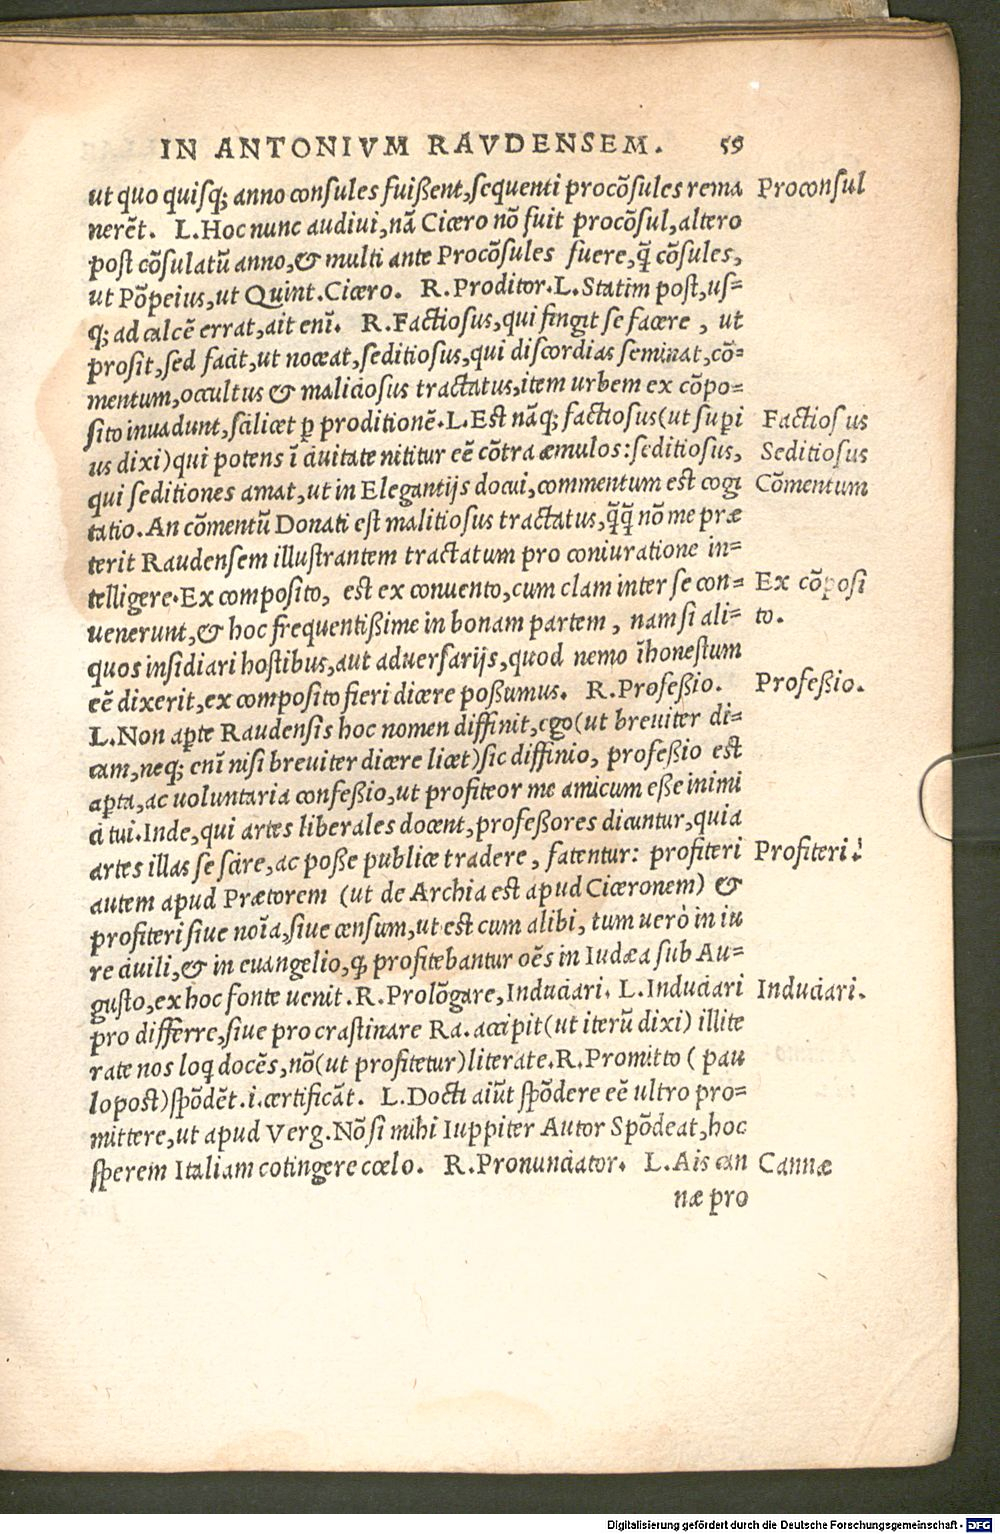 IN ANTONIVM RAVDENSEM. 59
ut quo quisq; anno consules fuißent, sequenti procõsules rema Proconsul
nerẽt. L. Hoc nunc audiui, nã Cicero nõ fuit procõsul, altero
post cõsulatũ anno, & multi ante Procõsules fuere, q̃ cõsules,
ut Põpeius, ut Quint. Cicero. R. Proditor. L. Statim post, us=
q; ad calcẽ errat, ait enĩ. R. Factiosus, qui fingit se facere, ut
prosit, sed facit, ut noceat, seditiosus, qui discordias seminat, cõ=
mentum, occultus & maliciosus tractatus, item urbem ex cõpo=
sito inuadunt, scilicet ꝑ proditionẽ. L. Est nãq; factiosus (ut supi Factiosus
us dixi) qui potens ĩ ciuitate nititur eẽ cõtra æmulos: seditiosus, Seditiosus
qui seditiones amat, ut in Elegantijs docui, commentum est cogi Cõmentum
tatio. An cõmentũ Donati est malitiosus tractatus, q̃q̃ nõ me præ
terit Raudensem illustrantem tractatum pro coniuratione in=
telligere. Ex composito, est ex conuento, cum clam inter se con= Ex cõposi
uenerunt, & hoc frequentißime in bonam partem, nam si ali= to.
quos insidiari hostibus, aut aduersarijs, quod nemo ĩhonestum
eẽ dixerit, ex composito fieri dicere poßumus. R. Profeßio. Profeßio.
L. Non aꝑte Raudensis hoc nomen diffinit, ego (ut breuiter di=
cam, neq; enĩ nisi breuiter dicere licet) sic diffinio, profeßio est
aꝑta, ac uoluntaria confeßio, ut profiteor me amicum eße inimi
ci tui. Inde, qui artes liberales docent, profeßores dicuntur, quia
artes illas se scire, ac poße publice tradere, fatentur: profiteri Profiteri
autem apud Prætorem (ut de Archia est apud Ciceronem) &
profiteri siue noĩa, siue censum, ut est cum alibi, tum uerò in iu
re ciuili, & in euangelio, ꝙ profitebantur oẽs in Iudæa sub Au=
gusto, ex hoc fonte uenit. R. Prolõgare, Induciari. L. Induciari Induciari.
pro differre, siue procrastinare Ra. accipit (ut iterũ dixi) illite
rate nos loq docẽs, nõ (ut profitetur) literate. R. Promitto (pau
lo post) spõdẽt. i. certificãt. L. Docti aiũt spõdere eẽ ultro pro=
mittere, ut apud Verg. Nõ si mihi Iuppiter Autor Spõdeat, hoc
sperem Italiam cotingere cœlo. R. Pronunciator. L. Ais can Cannæ
næ pro
Digitalisierung gefördert durch die Deutsche Forschungsgemeinschaft - DFG